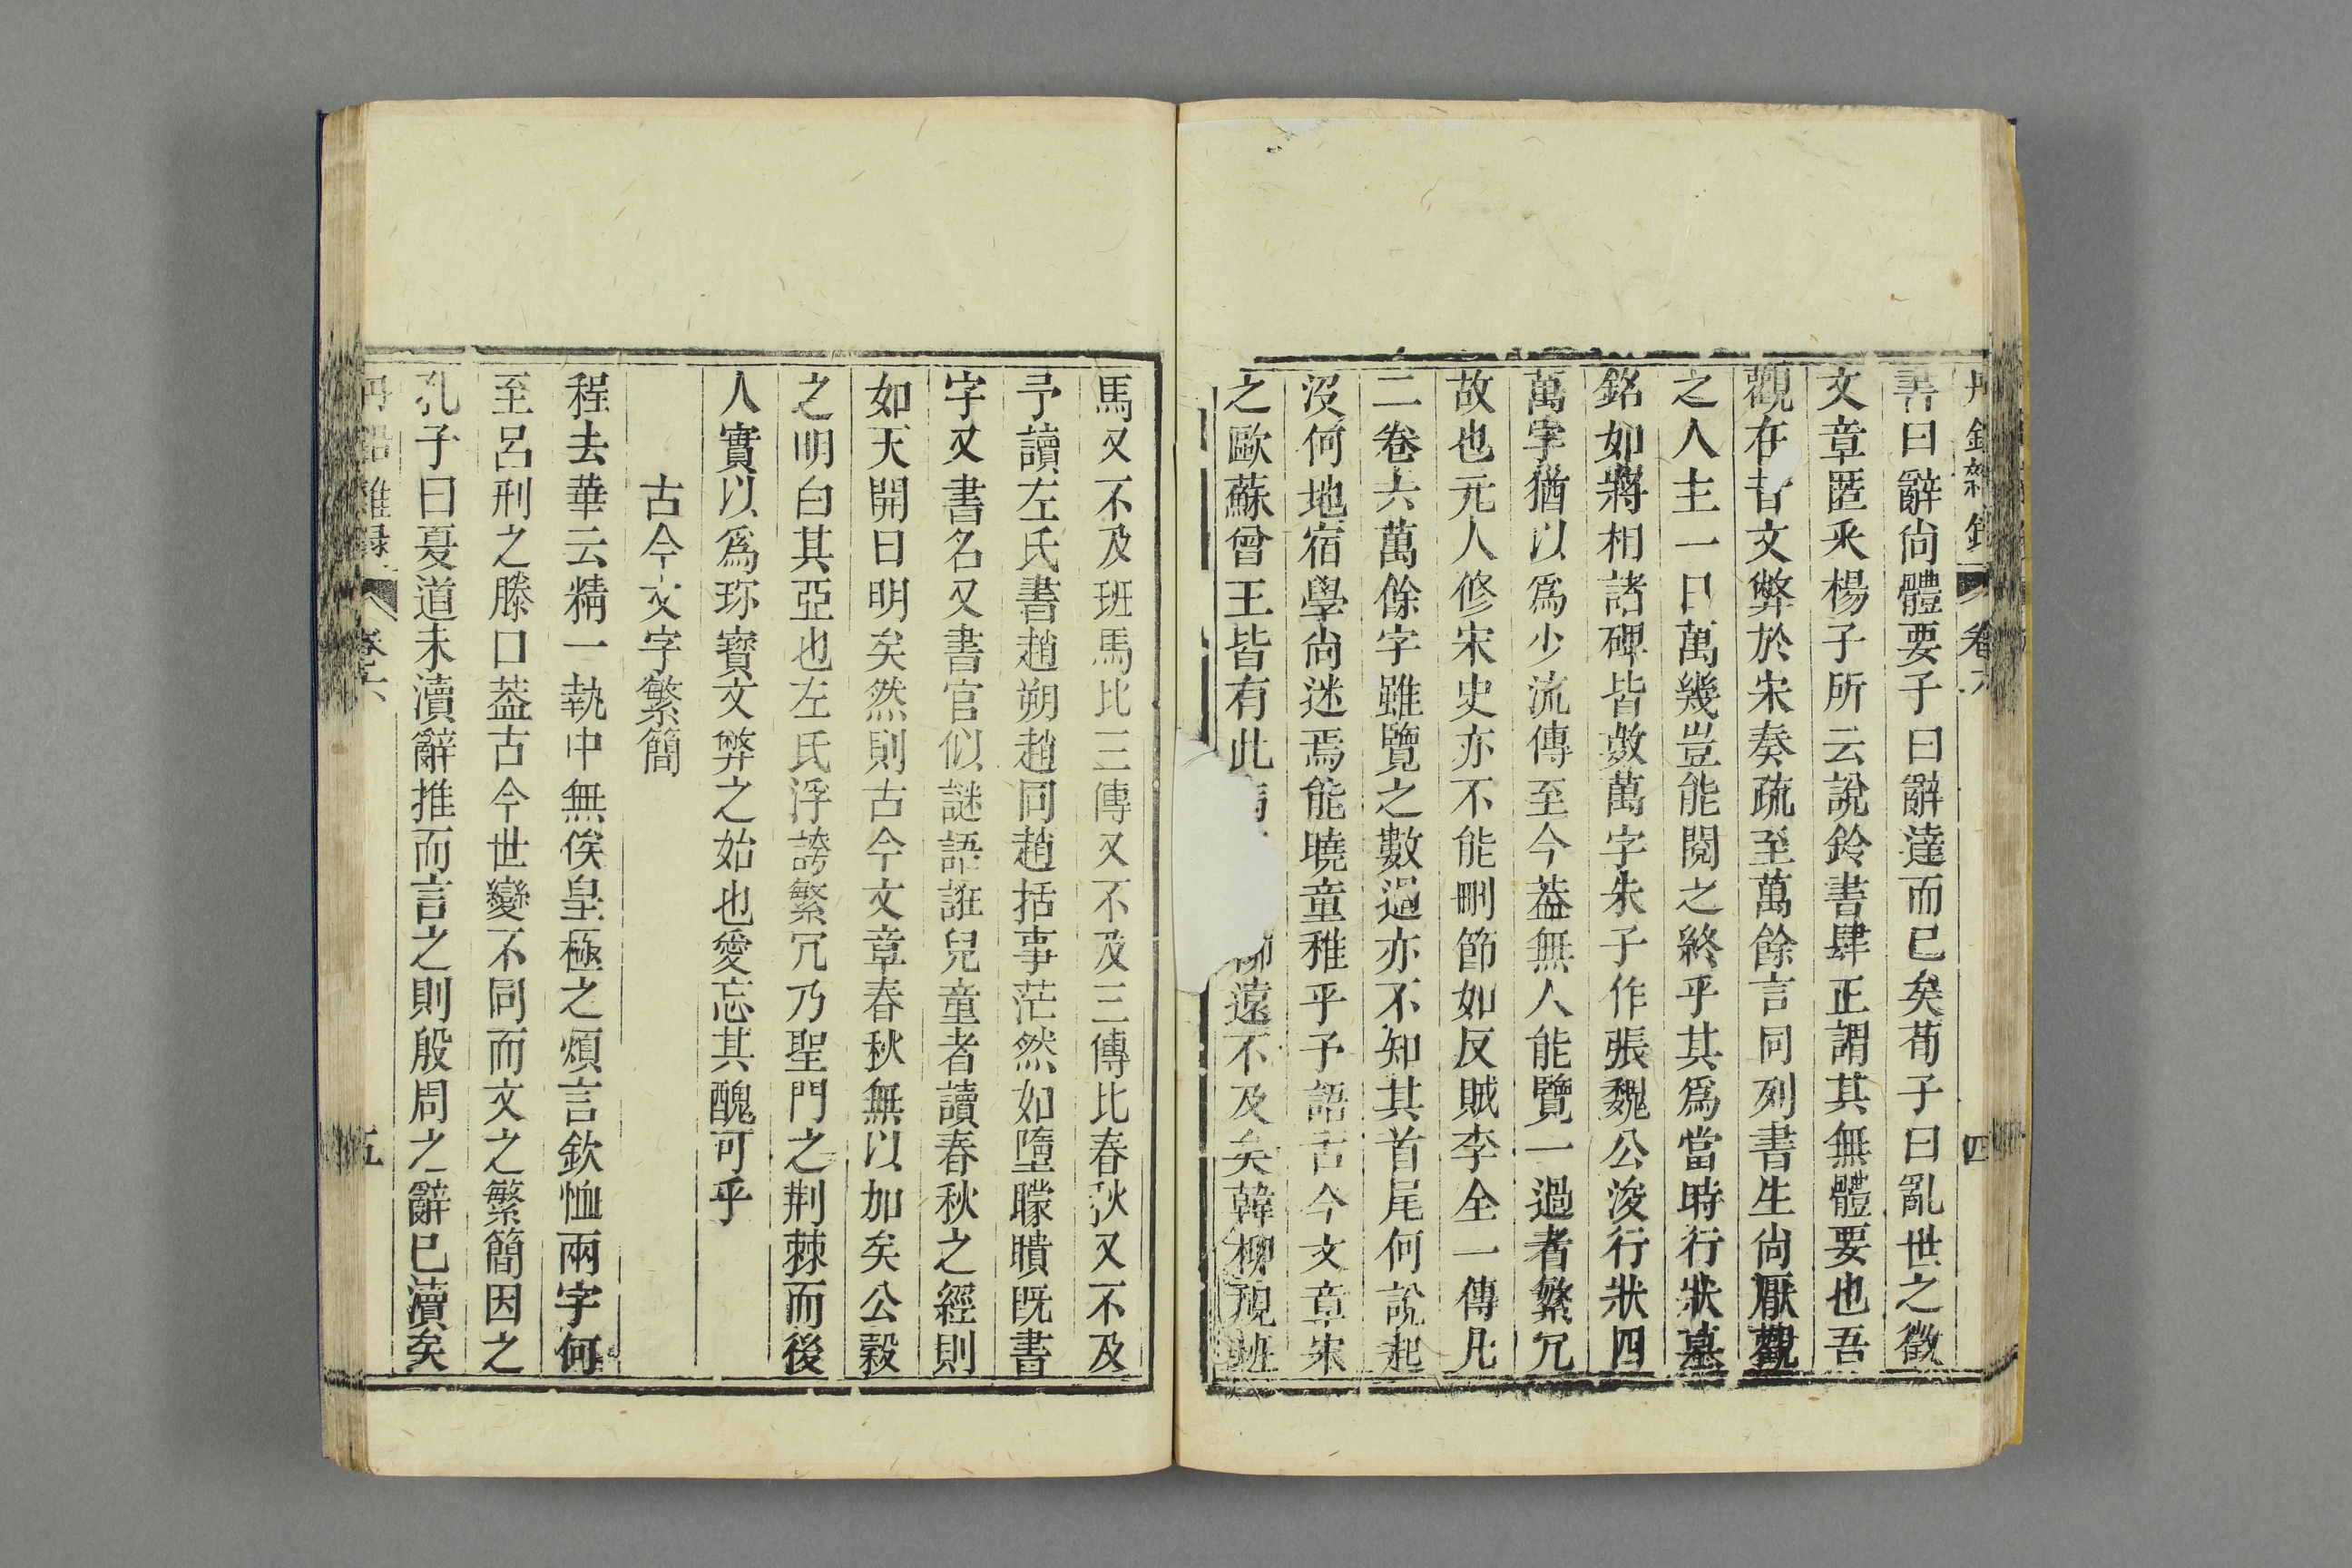 丹鉛雜錄 卷六 四
書曰辭尙體要子曰辭達而已矣荀子曰亂世之徵
文章匿采楊子所云說鈴書肆正謂其無體要也吾
觀在昔文弊於宋奏疏至萬餘言同列書生尙厭觀
之人主一日萬幾豈能閱之終乎其爲當時行狀墓
銘如將相諸碑皆數萬字朱子作張魏公浚行狀四
萬字猶以爲少流傳至今葢無人能覽一過者繁冗
故也元人修宋史亦不能刪節如反賊李全一傳凡
二卷六萬餘字雖覽之數過亦不知其首尾何說起
沒何地宿學尙迷焉能曉童稚乎予語古今文章宋
之歐蘇曾王皆有此 遠不及矣韓柳視班
馬又不及班馬比三傳又不及三傳比春秋又不及
予讀左氏書趙朔趙同趙括事茫然如墮矇瞶旣書
字又書名又書官似謎語誑兒童者讀春秋之經則
如天開日明矣然則古今文章春秋無以加矣公穀
之明白其亞也左氏浮誇繁冗乃聖門之荆棘而後
人實以爲珎寶文弊之始也愛忘其醜可乎
古今文字繁簡
程去華云精一執中無俟皇極之煩言欽恤兩字何
至呂刑之滕口葢古今世變不同而文之繁簡因之
孔子曰夏道未瀆辭推而言之則殷周之辭已瀆矣
丹鉛雜錄 卷六 五